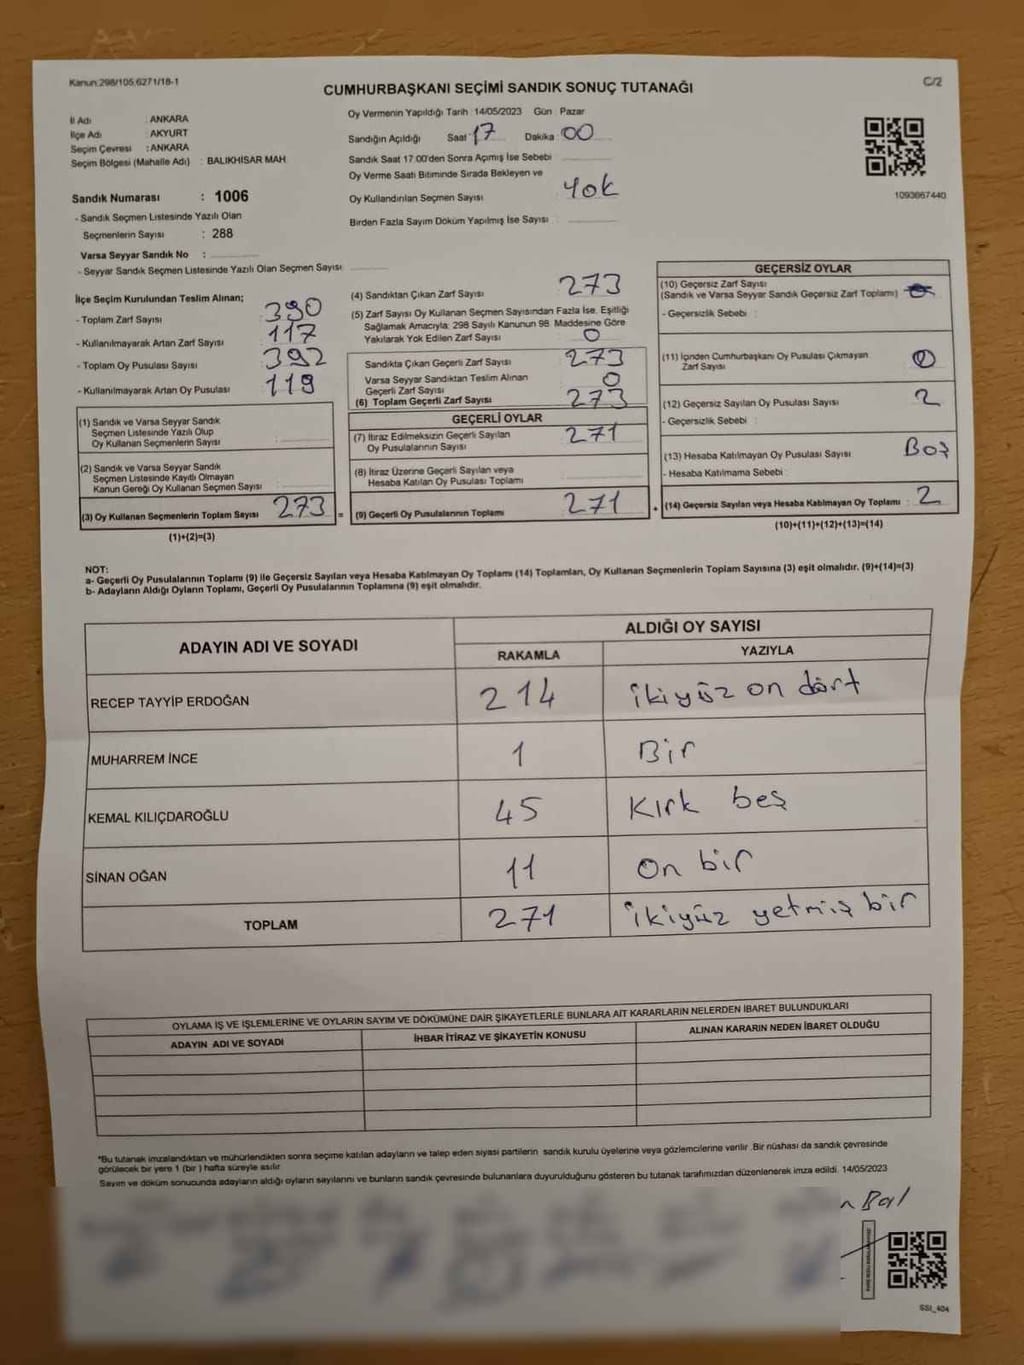 Kanun:298/105,6271/18-1
C/2
CUMHURBAŞKANI SEÇİMİ SANDIK SONUÇ TUTANAĞI
İl Adı : ANKARA
İlçe Adı : AKYURT
Seçim Çevresi : ANKARA
Seçim Bölgesi (Mahalle Adı) : BALIKHİSAR MAH
Sandık Numarası : 1006
- Sandık Seçmen Listesinde Yazılı Olan
Seçmenlerin Sayısı : 288
Varsa Seyyar Sandık No :
- Seyyar Sandık Seçmen Listesinde Yazılı Olan Seçmen Sayısı
Oy Vermenin Yapıldığı Tarih : 14/05/2023 Gün : Pazar
Sandığın Açıldığı Saat : 17 Dakika : 00
Sandık Saat 17:00'den Sonra Açımış İse Sebebi
Oy Verme Saati Bitiminde Sırada Bekleyen ve
Oy Kullandırılan Seçmen Sayısı Yok
Birden Fazla Sayım Döküm Yapılmış İse Sayısı
1093667440
İlçe Seçim Kurulundan Teslim Alınan;
- Toplam Zarf Sayısı 390
- Kullanılmayarak Artan Zarf Sayısı 117
- Toplam Oy Pusulası Sayısı 392
- Kullanılmayarak Artan Oy Pusulası 119
(1) Sandık ve Varsa Seyyar Sandık
Seçmen Listesinde Yazılı Olup
Oy Kullanan Seçmenlerin Sayısı
(2) Sandık ve Varsa Seyyar Sandık
Seçmen Listesinde Kayıtlı Olmayan
Kanun Gereği Oy Kullanan Seçmen Sayısı
(3) Oy Kullanan Seçmenlerin Toplam Sayısı 273 =
(1)+(2)=(3)
(4) Sandıktan Çıkan Zarf Sayısı 273
(5) Zarf Sayısı Oy Kullanan Seçmen Sayısından Fazla İse, Eşitliği
Sağlamak Amacıyla; 298 Sayılı Kanunun 98. Maddesine Göre
Yakılarak Yok Edilen Zarf Sayısı 0
Sandıkta Çıkan Geçerli Zarf Sayısı 273
Varsa Seyyar Sandıktan Teslim Alınan
Geçerli Zarf Sayısı 0
(6) Toplam Geçerli Zarf Sayısı 273
GEÇERLİ OYLAR
(7) İtiraz Edilmeksizin Geçerli Sayılan
Oy Pusulalarının Sayısı 271
(8) İtiraz Üzerine Geçerli Sayılan veya
Hesaba Katılan Oy Pusulası Toplamı
(9) Geçerli Oy Pusulalarının Toplamı 271 +
GEÇERSİZ OYLAR
(10) Geçersiz Zarf Sayısı
(Sandık ve Varsa Seyyar Sandık Geçersiz Zarf Toplamı)
- Geçersizlik Sebebi :
(11) İçinden Cumhurbaşkanı Oy Pusulası Çıkmayan
Zarf Sayısı 0
(12) Geçersiz Sayılan Oy Pusulası Sayısı 2
- Geçersizlik Sebebi :
(13) Hesaba Katılmayan Oy Pusulası Sayısı Boş
- Hesaba Katılmama Sebebi
(14) Geçersiz Sayılan veya Hesaba Katılmayan Oy Toplamı : 2
(10)+(11)+(12)+(13)=(14)
NOT:
a- Geçerli Oy Pusulalarının Toplamı (9) ile Geçersiz Sayılan veya Hesaba Katılmayan Oy Toplamı (14) Toplamları, Oy Kullanan Seçmenlerin Toplam Sayısına (3) eşit olmalıdır. (9)+(14)=(3)
b- Adayların Aldığı Oyların Toplamı, Geçerli Oy Pusulalarının Toplamına (9) eşit olmalıdır.
ADAYIN ADI VE SOYADI
ALDIĞI OY SAYISI
RAKAMLA YAZIYLA
RECEP TAYYİP ERDOĞAN 214 ikiyüz on dört
MUHARREM İNCE 1 Bir
KEMAL KILIÇDAROĞLU 45 Kırk beş
SİNAN OĞAN 11 On bir
TOPLAM 271 ikiyüz yetmiş bir
OYLAMA İŞ VE İŞLEMLERİNE VE OYLARIN SAYIM VE DÖKÜMÜNE DAİR ŞİKAYETLERLE BUNLARA AİT KARARLARIN NELERDEN İBARET BULUNDUKLARI
ADAYIN ADI VE SOYADI İHBAR İTİRAZ VE ŞİKAYETİN KONUSU ALINAN KARARIN NEDEN İBARET OLDUĞU
*Bu tutanak imzalandıktan ve mühürlendikten sonra seçime katılan adayların ve talep eden siyasi partilerin sandık kurulu üyelerine veya gözlemcilerine verilir. Bir nüshası da sandık çevresinde
görülecek bir yere 1 (bir ) hafta süreyle asılır
Sayım ve döküm sonucunda adayların aldığı oyların sayılarını ve bunların sandık çevresinde bulunanlara duyurulduğunu gösteren bu tutanak tarafımızdan düzenlenerek imza edildi. 14/05/2023
n Bal
SSI_404